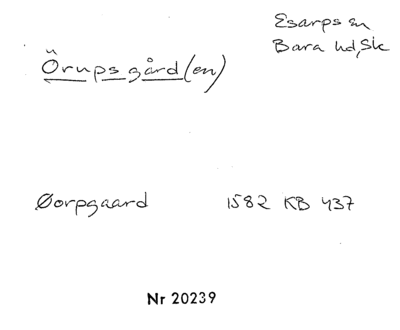 Esarps sn
Bara hd, Sk
Örupsgård(en)
Øorpgaard 1582 KB 437
Nr 20239